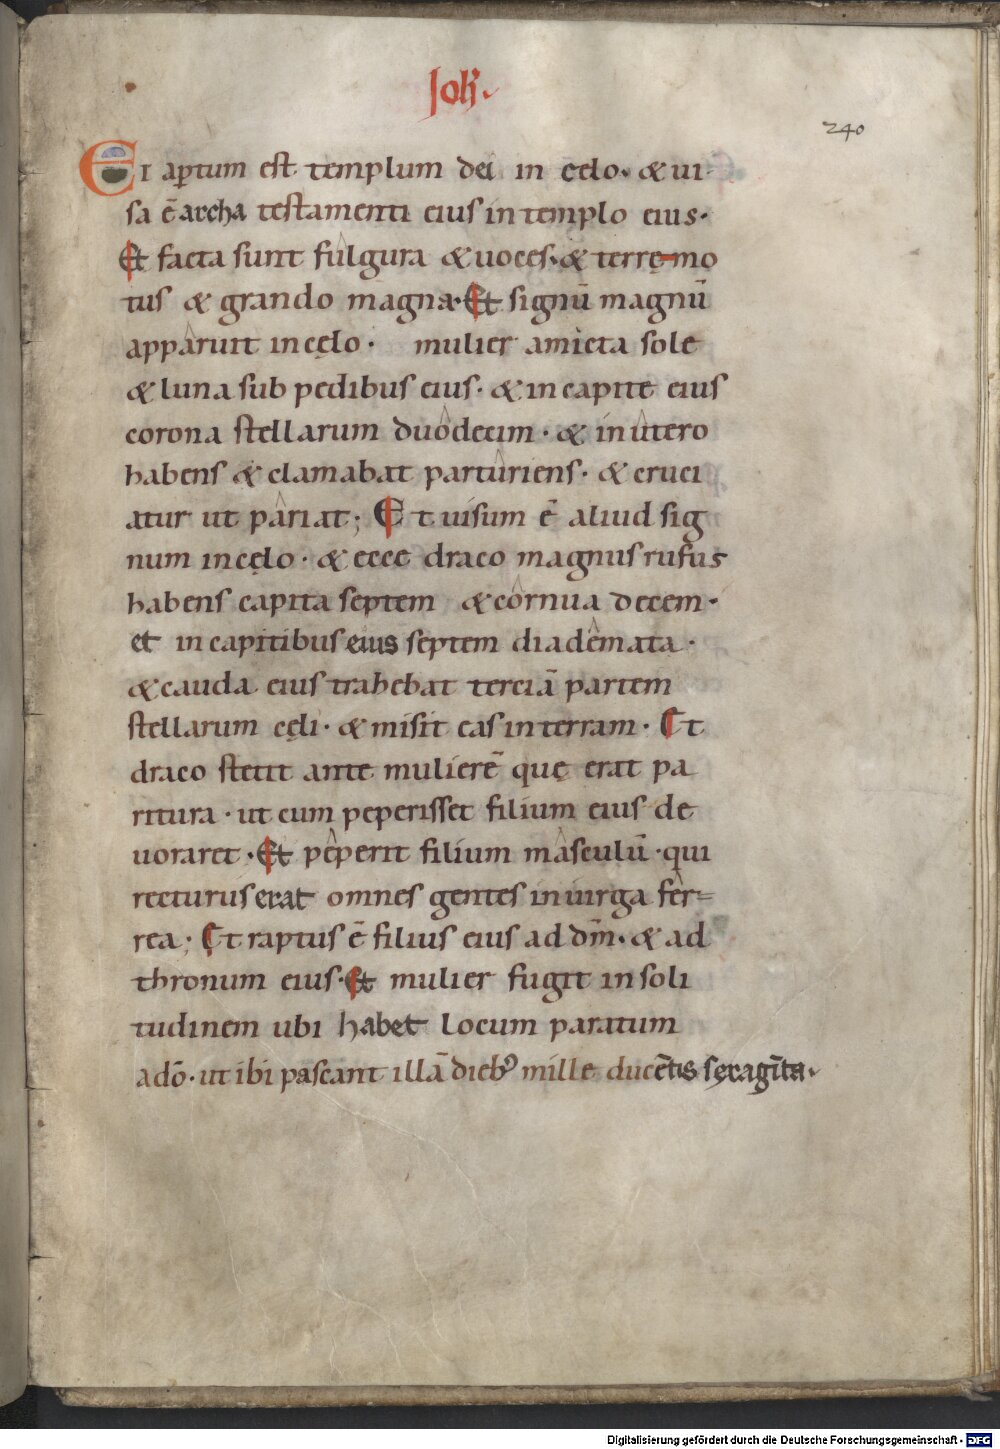 Joħ.
240
Et aꝑtum est templum dei in celo. & ui-
sa ē archa testamenti eius in templo eius.
Et facta sunt fulgura & uoces. & terrę mo
tus & grando magna. Et signū magnū
apparuit in cęlo. mulier amicta sole
& luna sub pedibus eius. & in capite eius
corona stellarum duodecim. & in utero
habens & clamabat parturiens. & cruci
atur ut pariat; Et uisum ē aliud sig
num in cęlo. & ecce draco magnus rufus
habens capita septem & cornua decem.
et in capitibus eius septem diademata.
& cauda eius trahebat terciā partem
stellarum cęli. & misit eas in terram. Et
draco stetit ante mulierē quę erat pa
ritura. ut cum peperisset filium eius de
uoraret. Et peperit filium masculū. qui
recturus erat omnes gentes in uirga fer=
rea; Et raptus ē filius eius ad dm̄. & ad
thronum eius. Et mulier fugit in soli
tudinem ubi habet locum paratum
a dō. ut ibi pascant illā dieb⁹ mille ducētis sexagīta.
Digitalisierung gefördert durch die Deutsche Forschungsgemeinschaft - DFG